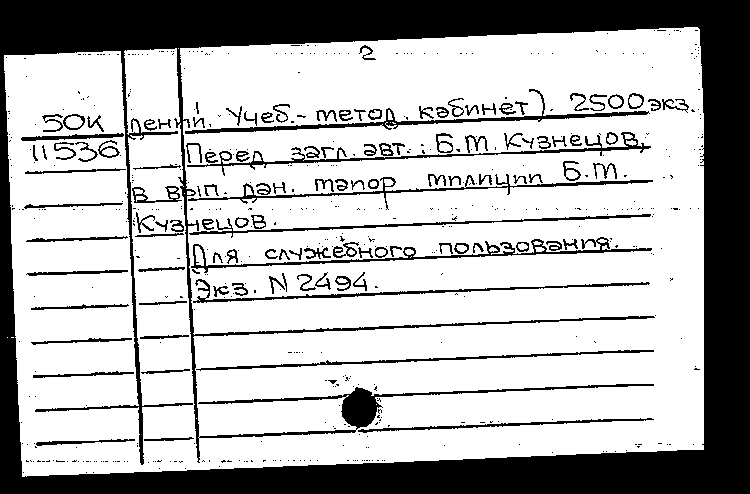 2
50К дений. Учеб.-метод. кабинет). 2500 экз.
11536 Перед загл. авт.: Б.М. Кузнецов,
в вып. дан. майор милиции Б.М.
Кузнецов.
Для служебного пользования.
Экз. N 2494.